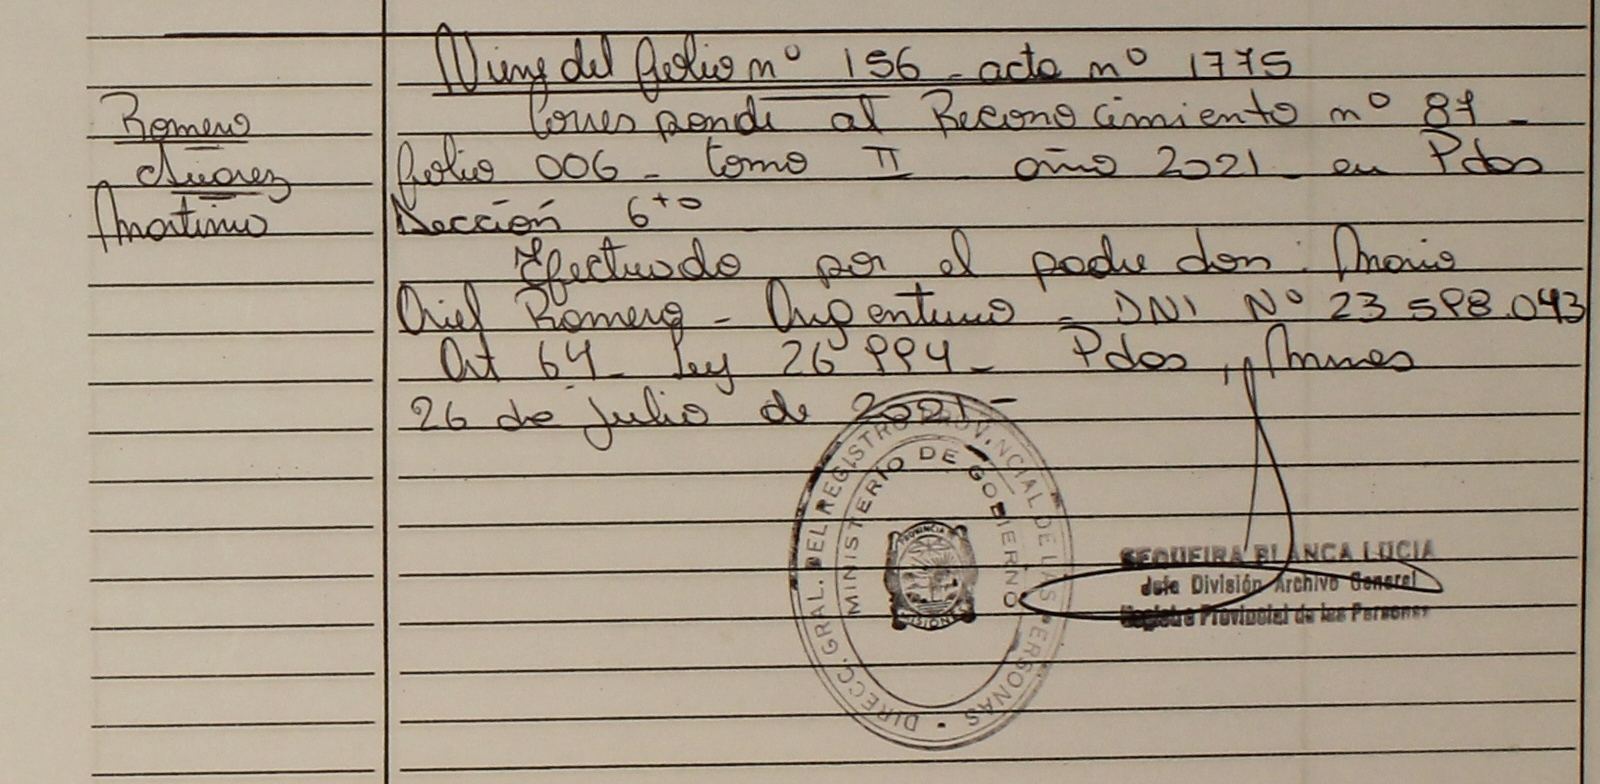 Viene del folio nº 156 - acta nº 1775
Romero
Suarez
Martino
Corresponde al Reconocimiento nº 87 -
folio 006 - tomo II - año 2021 - en Pdas
Sección 6ta
Efectuado por el padre don: Mario
Ariel Romero - Argentino - DNI Nº 23 598.043
Art 64 - Ley 26 994 - Pdas, Mnes
26 de Julio de 2021 -
DIRECC. GRAL. DEL REGISTRO PROVINCIAL DE LAS PERSONAS
MINISTERIO DE GOBIERNO
PROVINCIA
MISIONES
SEQUEIRA BLANCA LUCIA
Jefa División Archivo General
Registro Provincial de las Personas